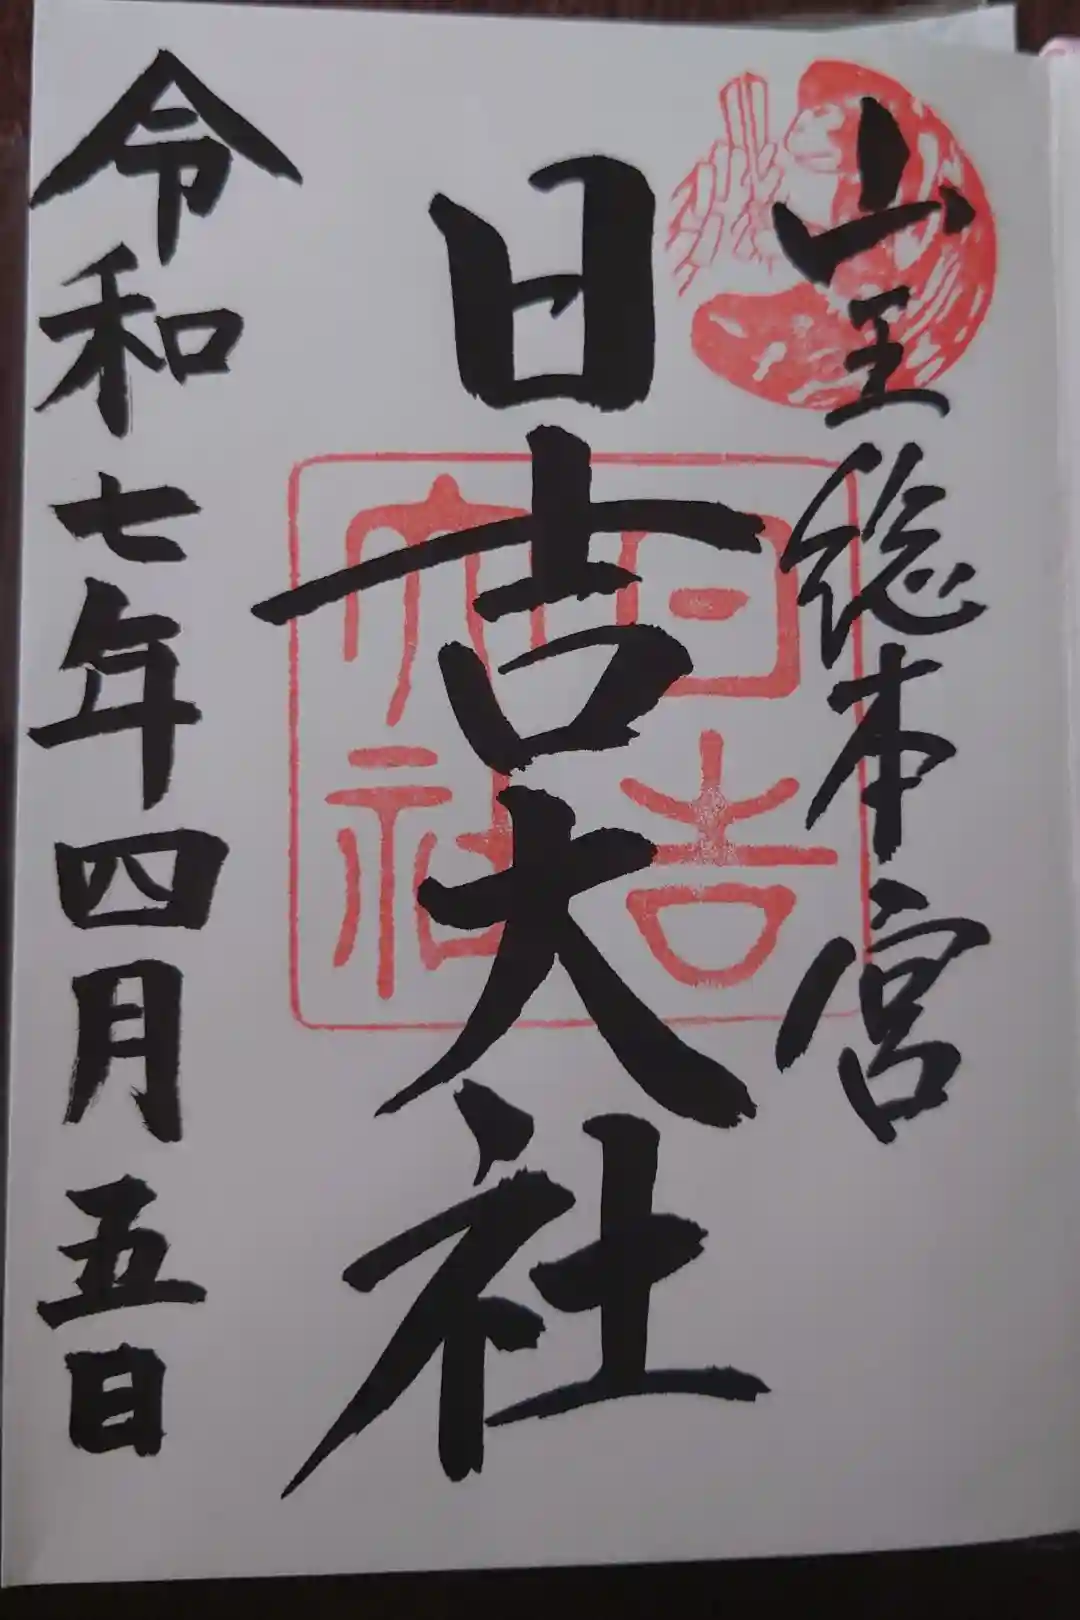 山王総本宮
日吉大社
日吉大社
令和七年四月五日